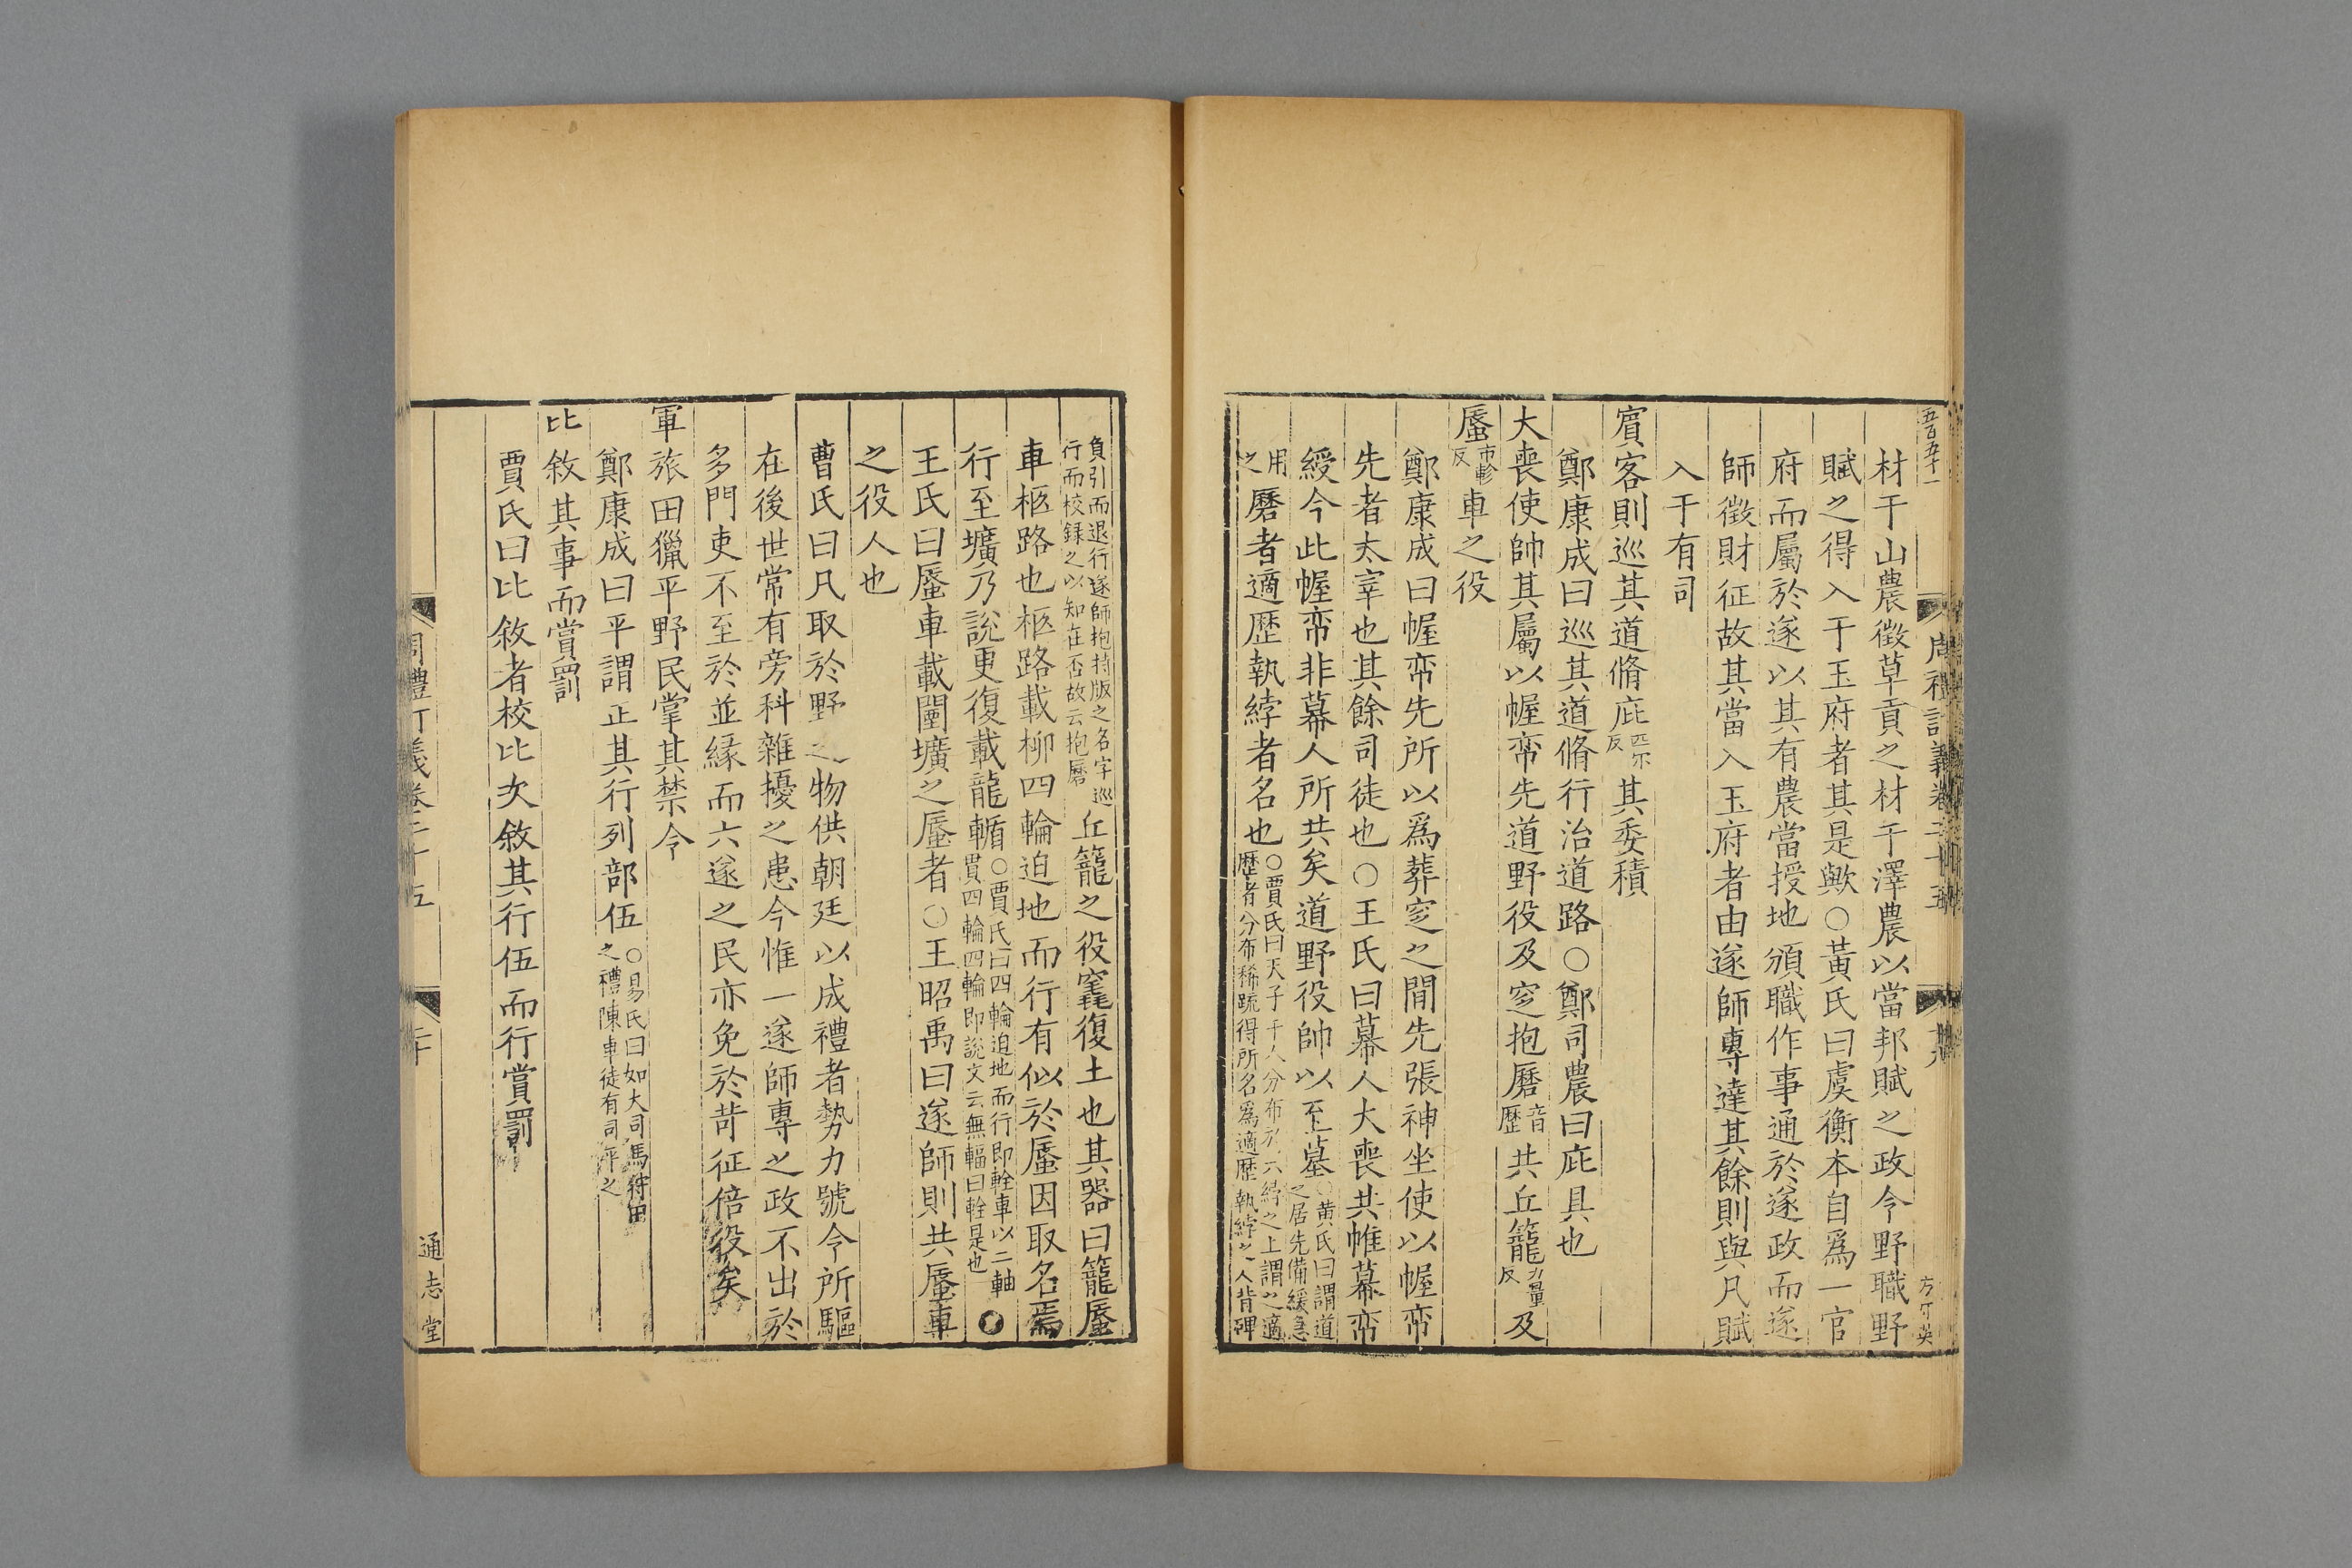 五百五十一
周禮訂義卷二十五
方子英
材于山農徵草貢之材于澤農以當邦賦之政令野職野
賦之得入于玉府者其是歟○黃氏曰虞衡本自爲一官
府而屬於遂以其有農當授地頒職作事通於遂政而遂
師徵財征故其當入玉府者由遂師專達其餘則與凡賦
入于有司
賔客則巡其道脩庇匹尔反其委積
鄭康成曰巡其道脩行治道路○鄭司農曰庇具也
大喪使帥其屬以幄帟先道野役及窆抱磿音歷共丘籠力量反及
蜃市軫反車之役
鄭康成曰幄帟先所以爲葬窆之間先張神坐使以幄帟
先者太宰也其餘司徒也○王氏曰幕人大喪共帷幕帟
綬今此幄帟非幕人所共矣道野役帥以至墓○黃氏曰謂道之居先備緩急
用之磿者適歷執綍者名也○賈氏曰天子千人分布於六綍之上謂之適歷者分布稀疏得所名爲適歷執綍之人背碑
負引而退行遂師抱持版之名字巡行而校録之以知在否故云抱磿丘籠之役竁復土也其器曰籠蜃
車柩路也柩路載柳四輪迫地而行有似於蜃因取名焉
行至壙乃說更復載龍輴○賈氏曰四輪迫地而行即輇車以二軸貫四輪四輪即說文云無輻曰輇是也
王氏曰蜃車載闉壙之蜃者○王昭禹曰遂師則共蜃車
之役人也
曹氏曰凡取於野之物供朝廷以成禮者勢力號令所驅
在後世常有旁科雜擾之患今惟一遂師專之政不出於
多門吏不至於並緣而六遂之民亦免於苛征倍役矣
軍旅田獵平野民掌其禁令
鄭康成曰平謂正其行列部伍○易氏曰如大司馬狩田之禮陳車徒有司平之
比敘其事而賞罰
賈氏曰比敘者校比次敘其行伍而行賞罰
周禮訂義卷二十五
二十
通志堂